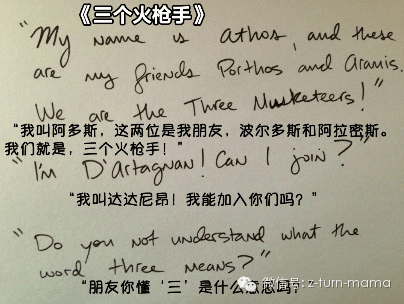 《三个火枪手》
"My name is Athos, and these
are my friends Porthos and Aramis.
We are the Three Musketeers!"
"我叫阿多斯，这两位是我朋友，波尔多斯和阿拉密斯。
我们就是，三个火枪手！"
"I'm D'Artagnan! Can I join?"
"我叫达达尼昂！我能加入你们吗？"
"Do you not understand what the
word three means?"
"朋友你懂‘三’是什么意思吗？"
微信号: z-turn-mama